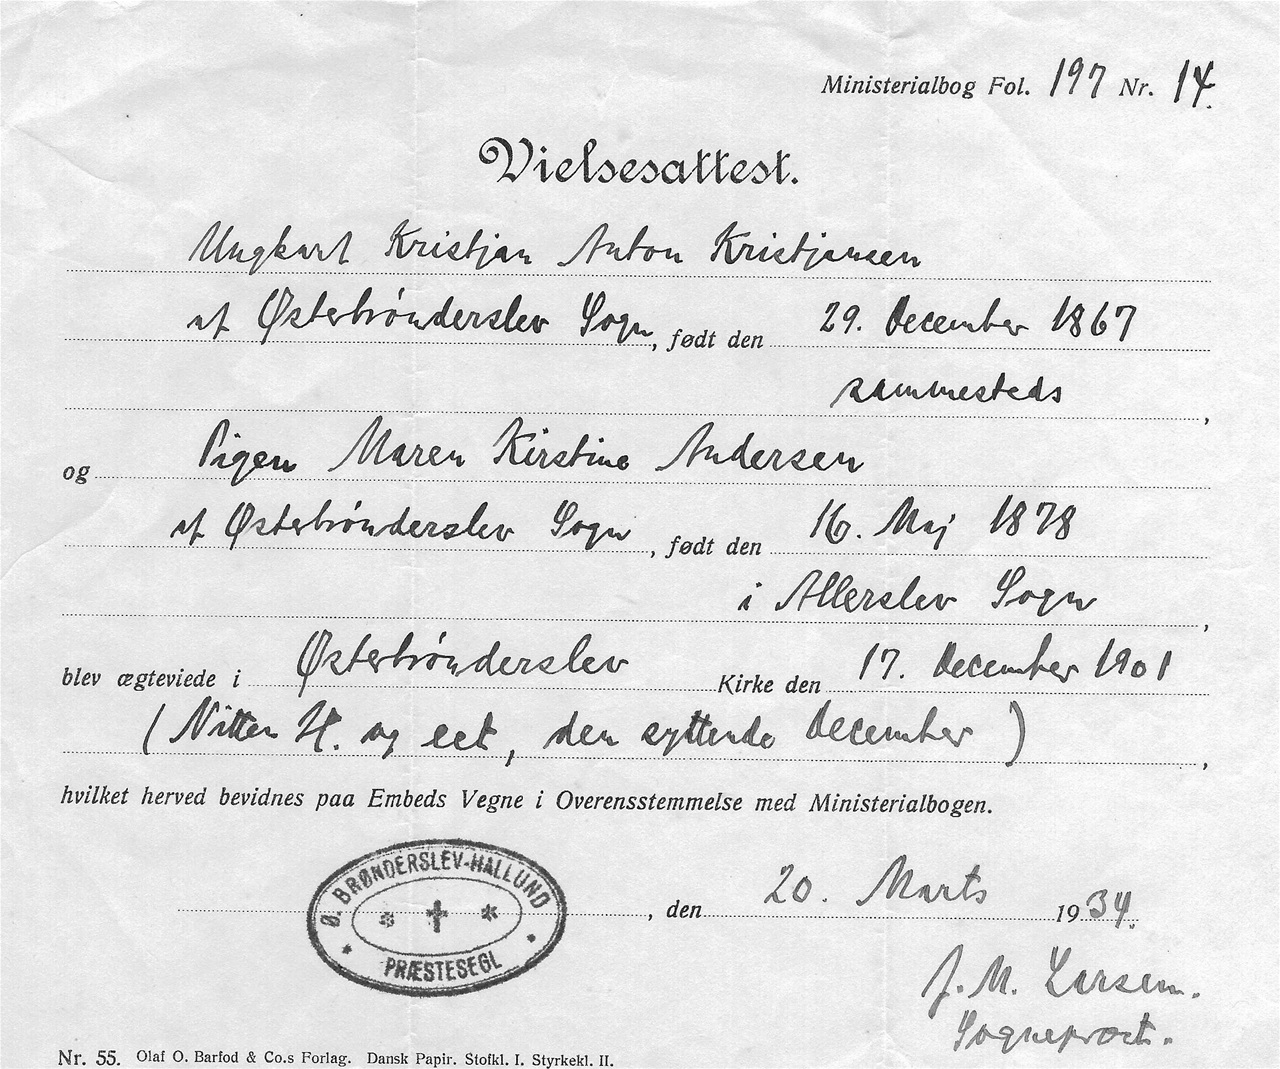 Ministerialbog Fol. 197 Nr. 14.
Vielsesattest.
Ungkarl Kristjan Anton Kristjansen
af Østerbrønderslev Sogn, født den 29. December 1867
sammesteds,
og Pigen Maren Kirstine Andersen
af Østerbrønderslev Sogn, født den 16. Maj 1878
i Allerslev Sogn,
blev ægteviede i Østerbrønderslev Kirke den 17. December 1901
(Nitten H. og eet, den syttende December),
hvilket herved bevidnes paa Embeds Vegne i Overensstemmelse med Ministerialbogen.
Ø. BRØNDERSLEV-HALLUND
PRÆSTESEGL
, den 20. Marts 1934.
J. M. Larsen.
Sognepræst.
Nr. 55. Olaf O. Barfod & Co.s Forlag. Dansk Papir. Stofkl. I. Styrkekl. II.